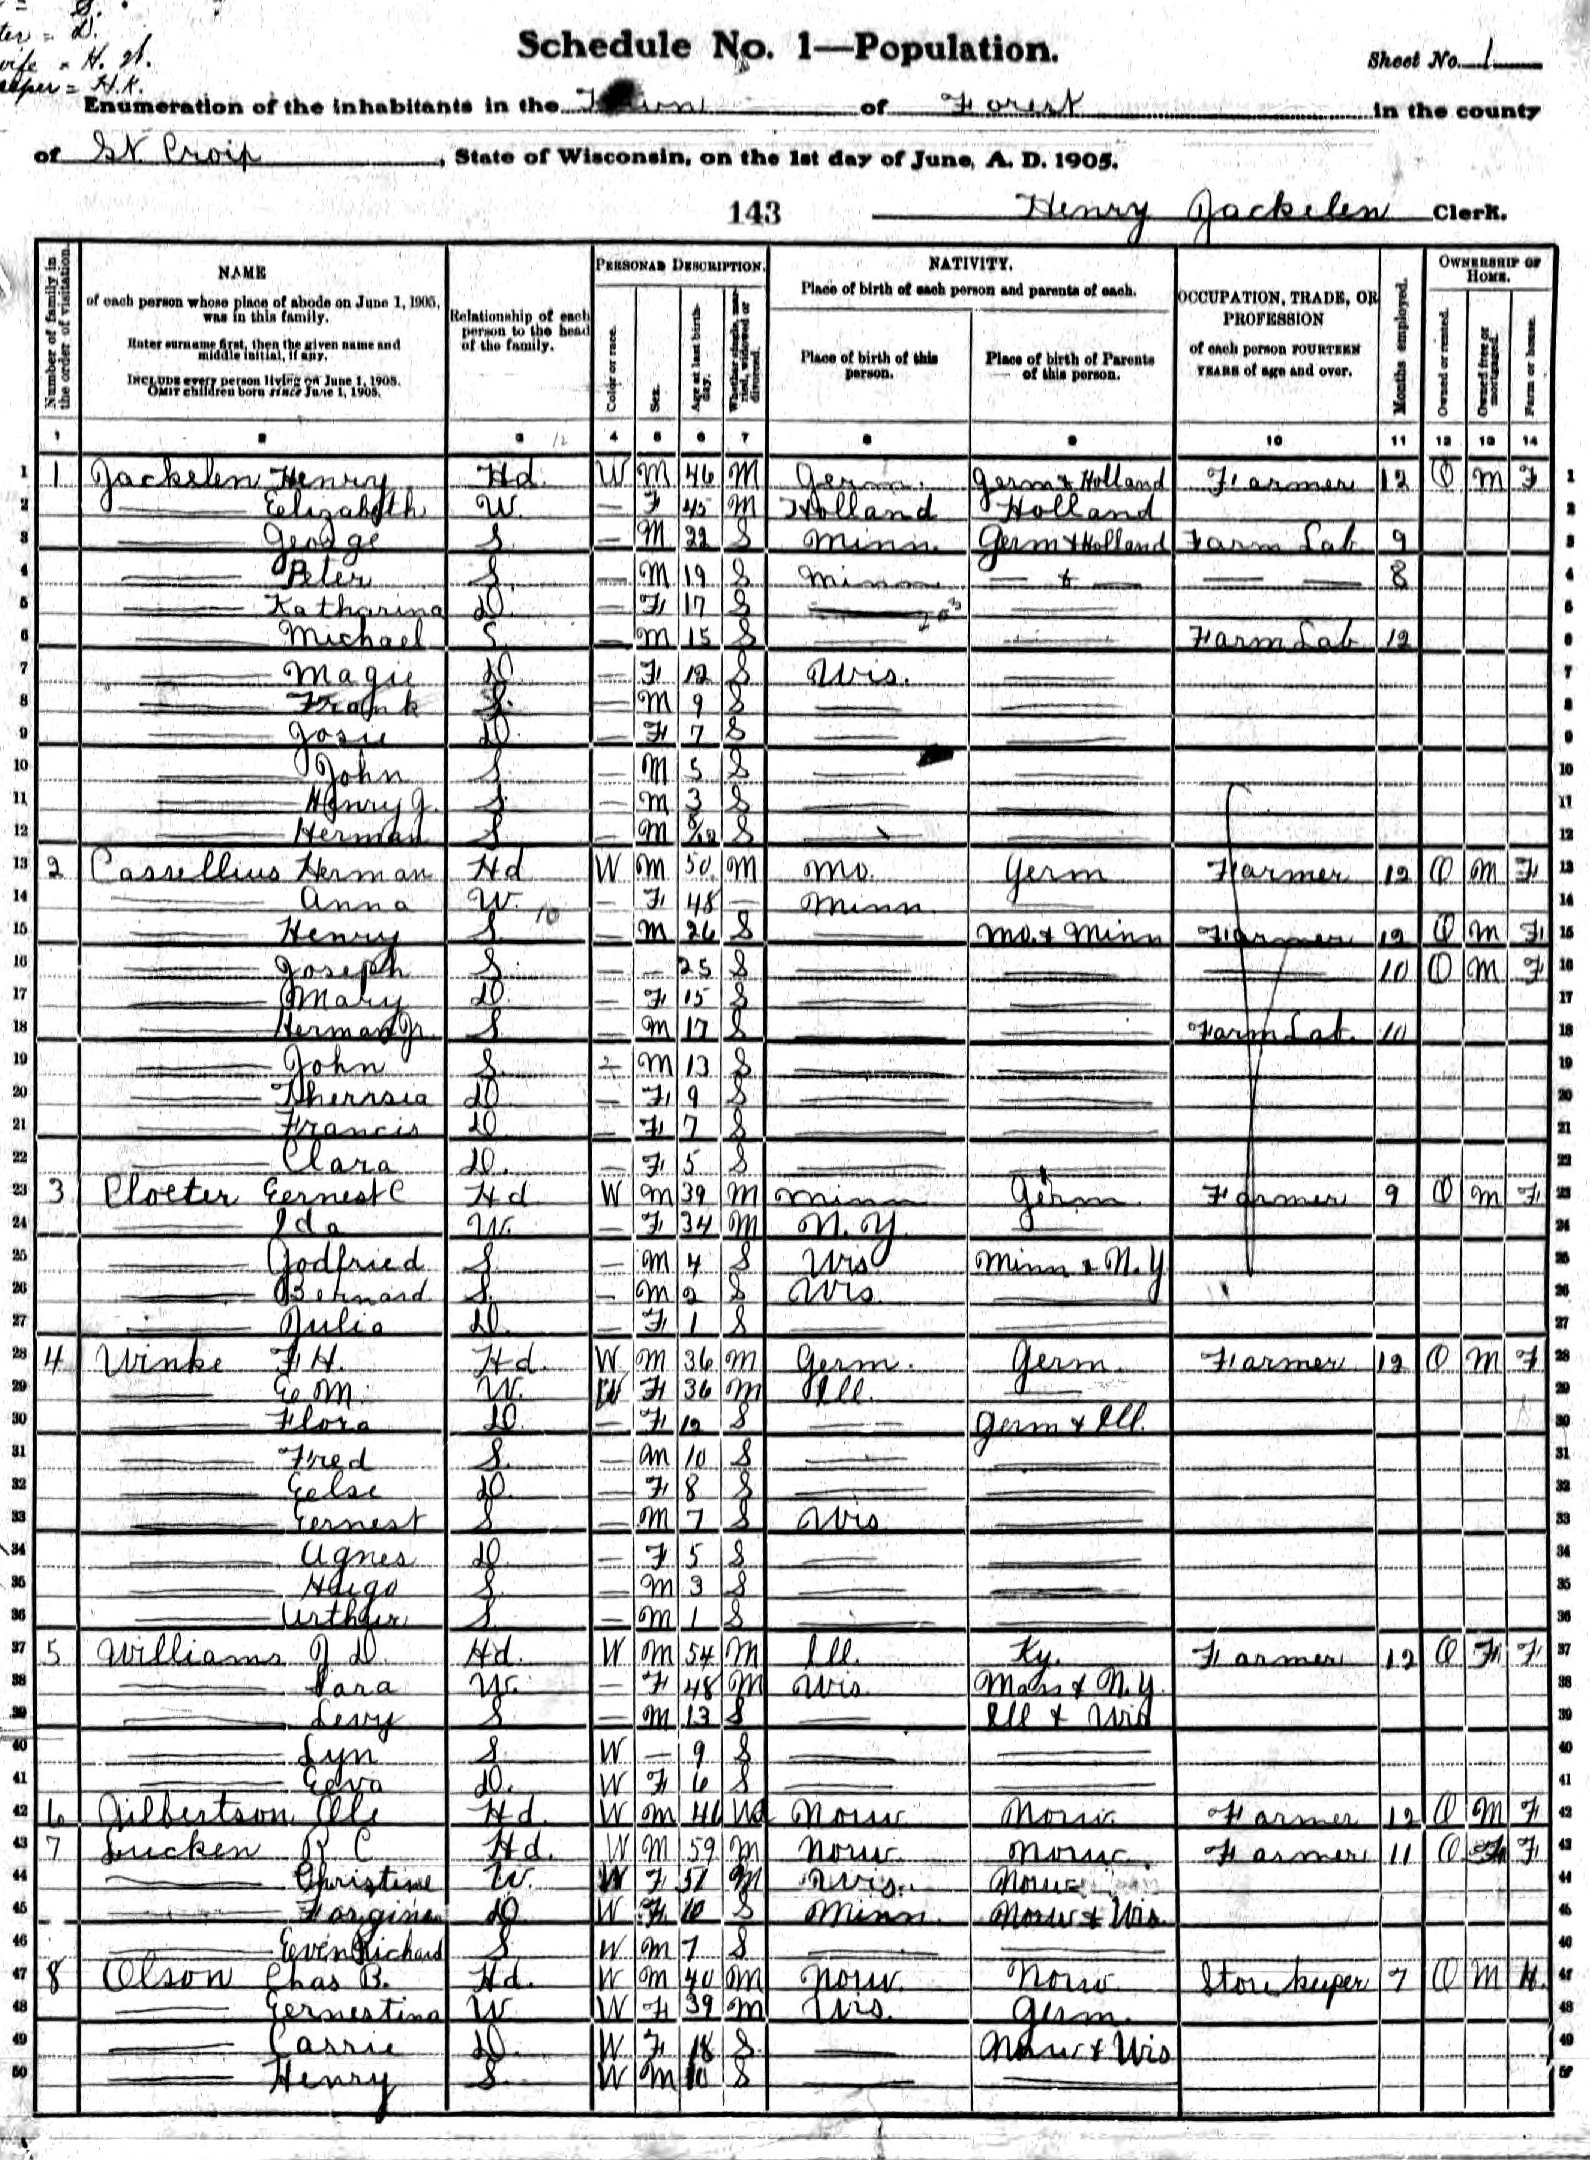 = D.
wife = H. W.
keeper = H.K.
Schedule No. 1—Population.
Sheet No. 1
Enumeration of the inhabitants in the Town of Forest in the county
of St. Croix, State of Wisconsin, on the 1st day of June, A. D. 1905.
143 Henry Jackelen Clerk.
Number of family in the order of visitation.
NAME
of each person whose place of abode on June 1, 1905, was in this family.
Enter surname first, then the given name and middle initial, if any.
INCLUDE every person living on June 1, 1905.
OMIT children born since June 1, 1905.
Relationship of each person to the head of the family.
PERSONAL DESCRIPTION.
Color or race.
Sex.
Age at last birthday.
Whether single, married, widowed or divorced.
NATIVITY.
Place of birth of each person and parents of each.
Place of birth of this person.
Place of birth of Parents of this person.
OCCUPATION, TRADE, OR PROFESSION
of each person FOURTEEN YEARS of age and over.
Months employed.
OWNERSHIP OF HOME.
Owned or rented.
Owned free or mortgaged.
Farm or house.
1 2 3 12 4 5 6 7 8 9 10 11 12 13 14
1 1 Jackelen Henry Hd. W M 46 M Germ. Germ & Holland Farmer 12 O M F 1
2 — Eelizabeth W. — F 45 M Holland Holland 2
3 — George S. — M 22 S Minn. Germ & Holland Farm Lab 9 3
4 — Peter S. — M 19 S Minn. — & — — — 8 4
5 — Katharina D. — F 17 S — — 5
6 — Michael S. — M 15 S — — Farm Lab 12 6
7 — Magie D. — F 12 S Wis. — 7
8 — Frank S. — M 9 S — — 8
9 — Josie D. — F 7 S — — 9
10 — John S. — M 5 S — — 10
11 — Henry J. S. — M 3 S — — 11
12 — Herman S. — M /12 S — — 12
13 2 Cassellius Herman Hd W M 50 M Mo. Germ Farmer 12 O M F 13
14 — Anna W. — F 48 — Minn. — 14
15 — Henry S. 10 — M 26 S — Mo. & Minn Farmer 12 O M F 15
16 — Joseph S. — — 25 S — — — 10 O M F 16
17 — Mary D. — F 15 S — — 17
18 — Herman Jr. S. — M 17 S — — Farm Lab. 10 18
19 — John S. — M 13 S — — 19
20 — Therrsia D. — F 9 S — — 20
21 — Francis D. — F 7 S — — 21
22 — Clara D. — F 5 S — — 22
23 3 Ploeter Eernest C Hd W M 39 M Minn Germ. Farmer 9 O M F 23
24 — Ida W. — F 34 M N. Y. — 24
25 — Godfried S. — M 4 S Wis Minn & N. Y 25
26 — Bernard S. — M 2 S Wis. — 26
27 — Julia D. — F 1 S — — 27
28 4 Winke F. H. Hd. W M 36 M Germ. Germ. Farmer 12 O M F 28
29 — E. M. W. W F 36 M Ill. — 29
30 — Flora D. — F 12 S — Germ & Ill. 30
31 — Fred S. — M 10 S — — 31
32 — Eelsi D. — F 8 S — — 32
33 — Eernest S — M 7 S Wis — 33
34 — Agnes D. — F 5 S — — 34
35 — Hugo S. — M 3 S — — 35
36 — Arthur S. — M 1 S — — 36
37 5 Williams J. D. Hd. W M 54 M Ill. Ky. Farmer 12 O F F 37
38 — Sara W. — F 48 M Wis. Mass & N. Y. 38
39 — Levy S — M 13 S — Ill & Wis 39
40 — Lyn S W — 9 S — — 40
41 — Eeva D. W F 6 S — — 41
42 6 Gilbertson Ole Hd. W M 46 Wd Norw. Norw. Farmer 12 O M F 42
43 7 Lucken R C Hd. W M 59 M Norw. Norw. Farmer 11 O F F 43
44 — Christine W. W F 51 M Wis. Norw 44
45 — Forgine D. W F 10 S Minn. Norw & Wis. 45
46 — Even Richard S W M 7 S — — 46
47 8 Olson Chas B. Hd. W M 40 M Norw. Norw Store keeper 7 O M H. 47
48 — Eernestina W. W F 39 M Wis. Germ. 48
49 — Carrie D. W F 18 S — Norw & Wis 49
50 — Henry S. W M 10 S — — 50